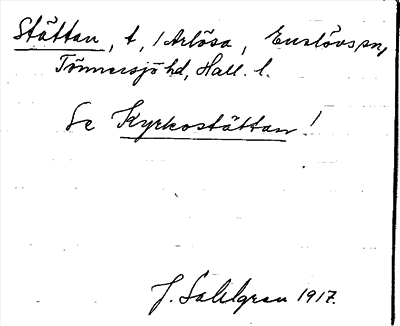 Stättan, t, i Arlösa, Enslövs sn,
Tönnersjö hd, Hall. l.
Se Kyrkostättan!
J. Sahlgren 1917.